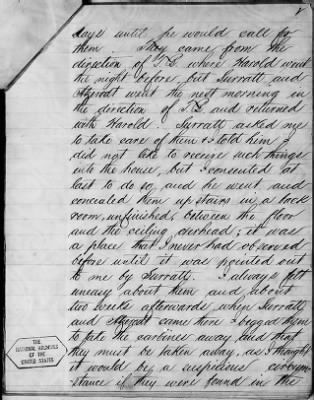 days until he would call for
them. They came from the
direction of T.B. where Harold went
the night before, but Surratt and
Atzerodt went the next morning in
the direction of T.B. and returned
with Harold. Surratt asked me
to take care of them & I told him I
did not like to receive such things
into the house, but I consented at
last to do so, and he went, and
concealed them up stairs in a back
room, unfinished, between the floor
and the ceiling overhead; it was
a place that I never had observed
before until it was pointed out
to me by Surratt. I always felt
uneasy about them and about
two weeks afterwards when Surratt
and Atzerodt came there I begged them
to take the carbines away and that
they must be taken away, as I thought
it would be a suspicious circum-
stance if they were found in the
THE
NATIONAL ARCHIVES
OF THE
UNITED STATES